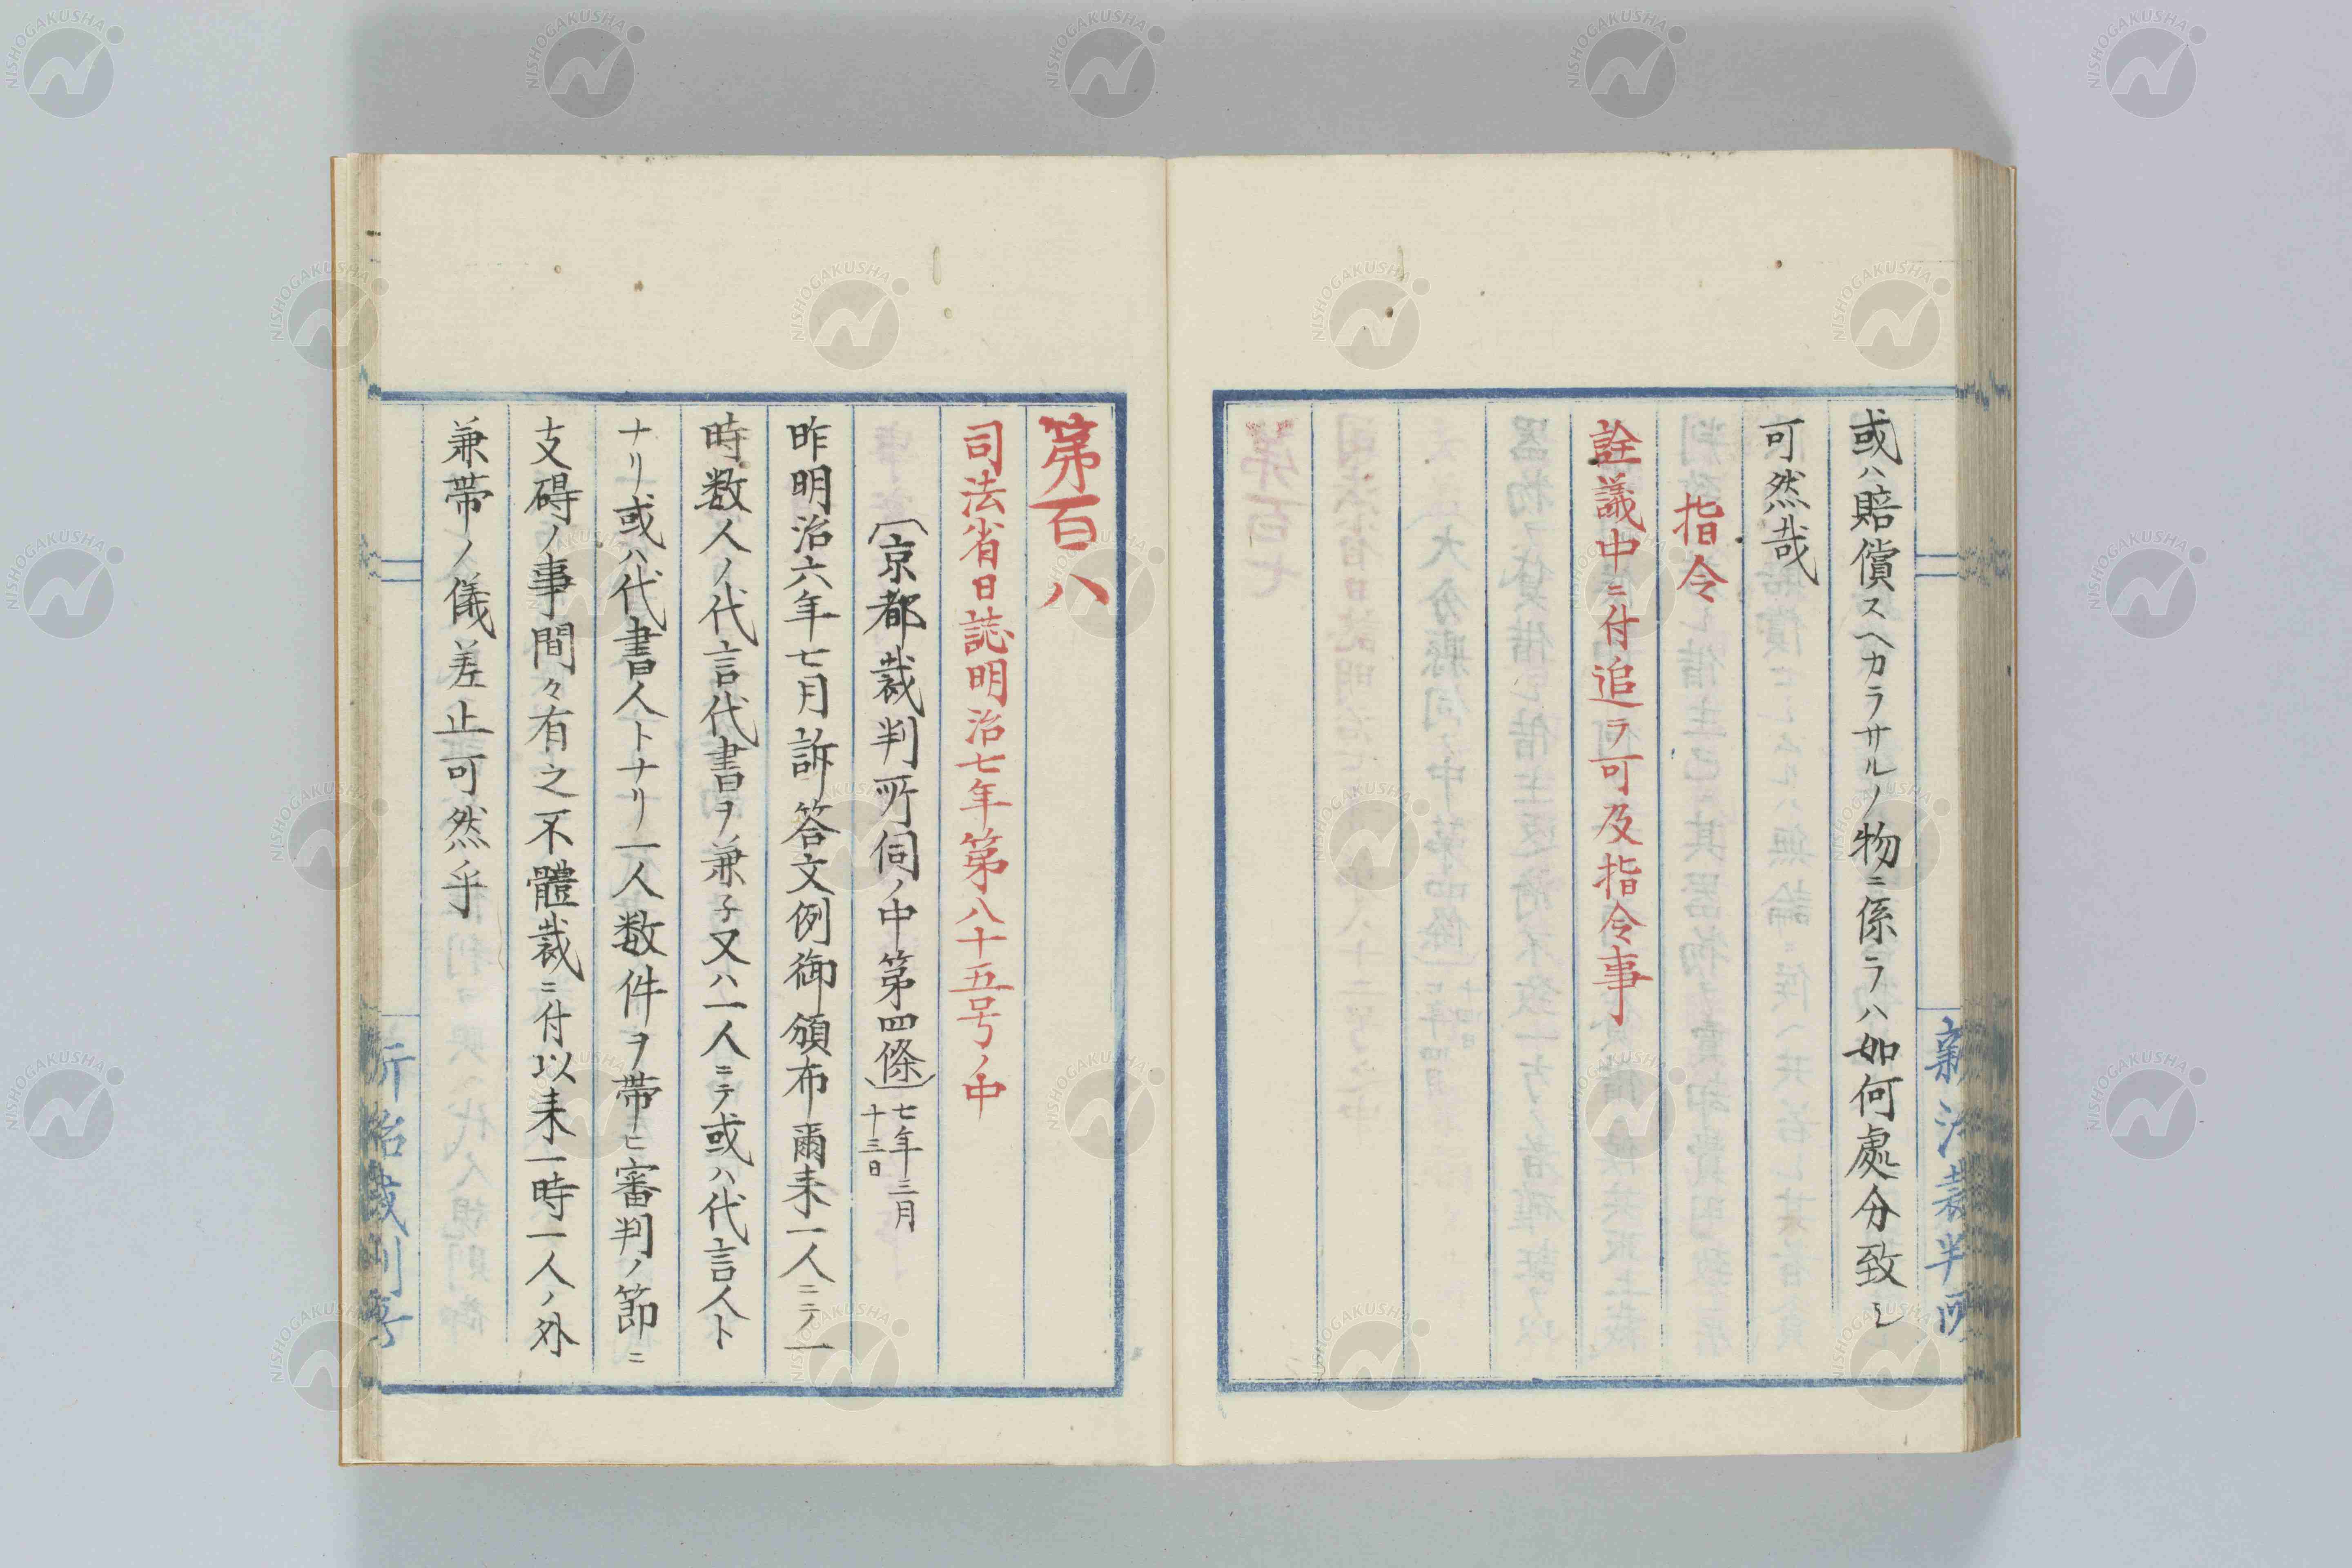 或ハ賠償スヘカラサルノ物ニ係ラハ如何處分致シ
可然哉
指令
詮議中ニ付追テ可及指令事
第百八
司法省日誌明治七年第八十五号ノ中
〔京都裁判所伺ノ中第四條〕七年三月十三日
昨明治六年七月訴答文例御頒布爾来一人ニテ一
時数人ノ代言代書ヲ兼子又ハ一人ニテ或ハ代言人ト
ナリ或ハ代書人トナリ一人数件ヲ帯ヒ審判ノ節ニ
支碍ノ事間々有之不體裁ニ付以来一時一人ノ外
兼帯ノ儀差止可然乎